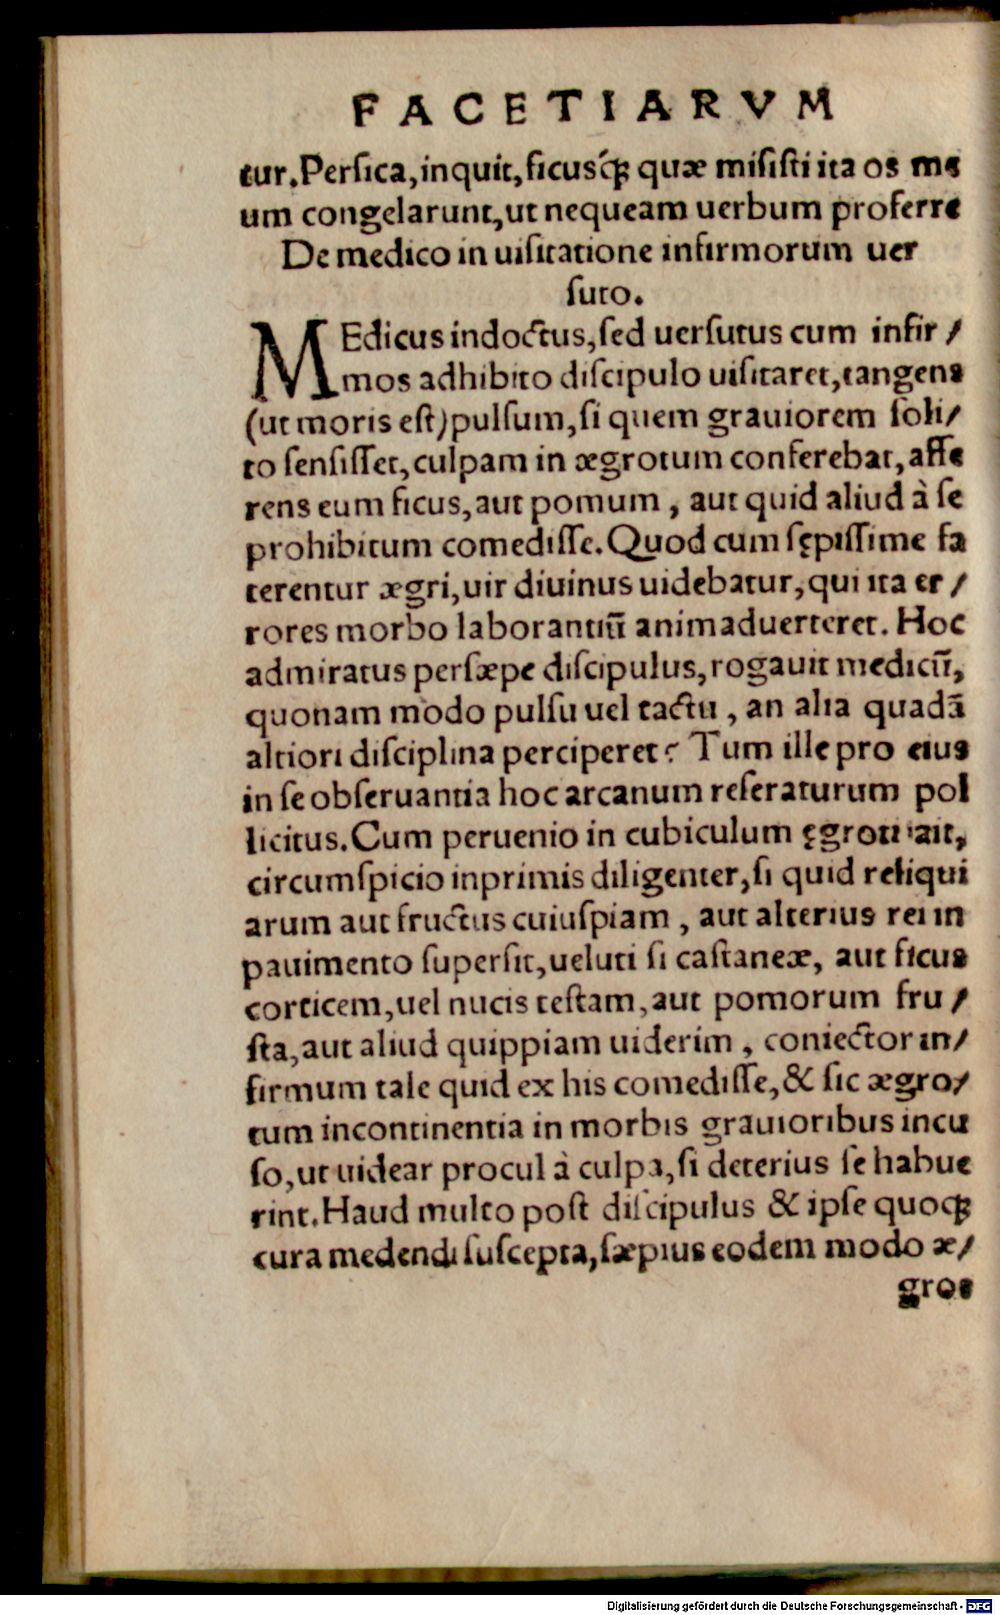 FACETIARVM
tur. Persica, inquit, ficusq́ꝫ quæ misisti ita os me
um congelarunt, ut nequeam uerbum proferre
De medico in uisitatione infirmorum uer
suto.
MEdicus indoctus, sed uersutus cum infir/
mos adhibito discipulo uisitaret, tangens
(ut moris est) pulsum, si quem grauiorem soli/
to sensisset, culpam in ægrotum conferebat, asse
rens eum ficus, aut pomum, aut quid aliud à se
prohibitum comedisse. Quod cum sępissime fa
terentur ægri, uir diuinus uidebatur, qui ita er/
rores morbo laborantiũ animaduerteret. Hoc
admiratus persæpe discipulus, rogauit medicũ,
quonam modo pulsu uel tactu, an alia quadã
altiori disciplina perciperet? Tum ille pro eius
in se obseruantia hoc arcanum reseraturum pol
licitus. Cum peruenio in cubiculum ęgroti ait,
circumspicio inprimis diligenter, si quid reliqui
arum aut fructus cuiuspiam, aut alterius rei in
pauimento supersit, ueluti si castaneæ, aut ficus
corticem, uel nucis testam, aut pomorum fru/
sta, aut aliud quippiam uiderim, coniector in/
firmum tale quid ex his comedisse, & sic ægro/
tum incontinentia in morbis grauioribus incu
so, ut uidear procul à culpa, si deterius se habue
rint. Haud multo post discipulus & ipse quoqꝫ
cura medendi suscepta, sæpius eodem modo æ/
gros
Digitalisierung gefördert durch die Deutsche Forschungsgemeinschaft - DFG